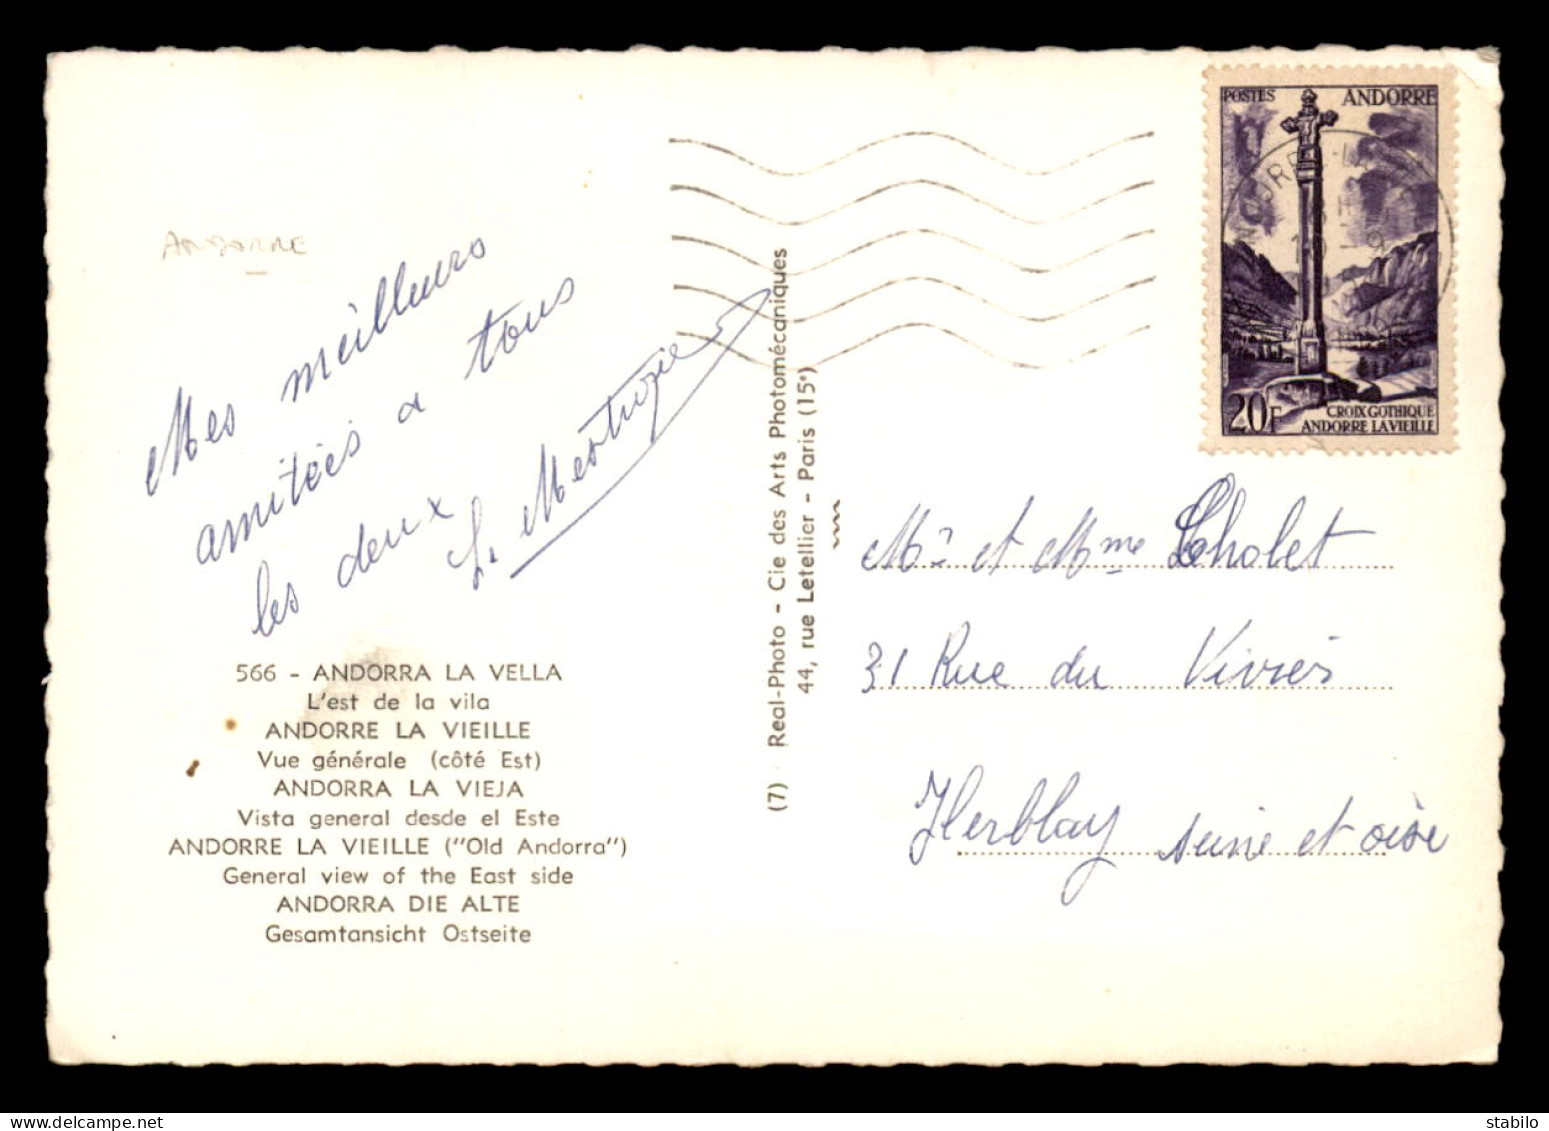 ANDORRE
Mes meilleurs
amitiés a tous
les deux
566 - ANDORRA LA VELLA
L'est de la vila
ANDORRE LA VIEILLE
Vue générale (côté Est)
ANDORRA LA VIEJA
Vista general desde el Este
ANDORRE LA VIEILLE ("Old Andorra")
General view of the East side
ANDORRA DIE ALTE
Gesamtansicht Ostseite
(7) Real-Photo - Cie des Arts Photomécaniques
44, rue Letellier - Paris (15e)
POSTES ANDORRE
20F
CROIX GOTHIQUE
ANDORRE LA VIEILLE
Mr et Mme Cholet
31 Rue du Vivier
Herblay seine et oise
delcampe.net
stabilo